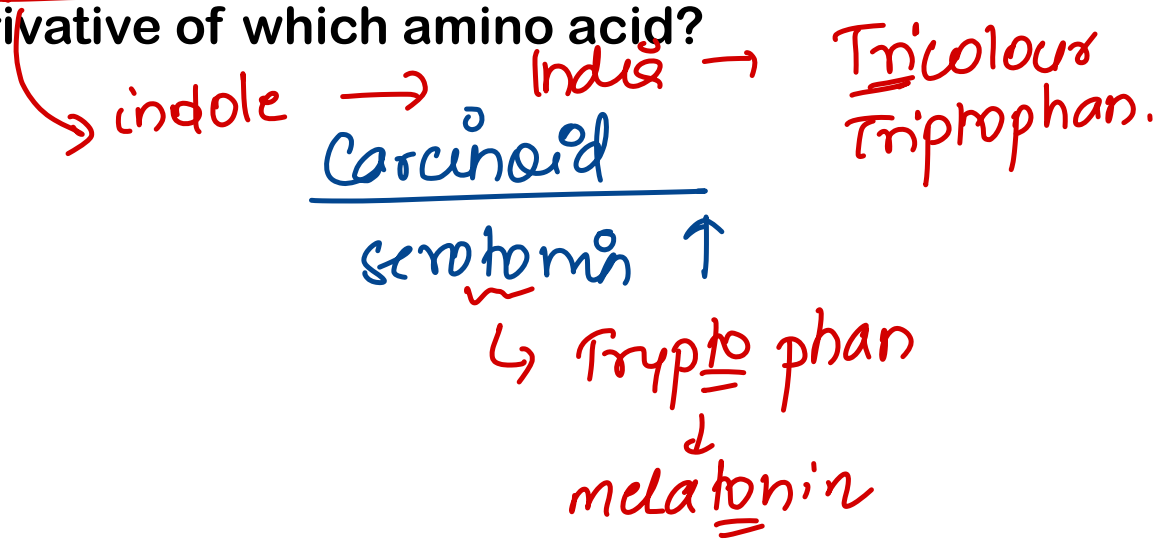 ivative of which amino acid?
indole → India → Tricolour
Triptophan.
Carcinoid
serotonin ↑
↳ Tryptophan
↓
melatonin